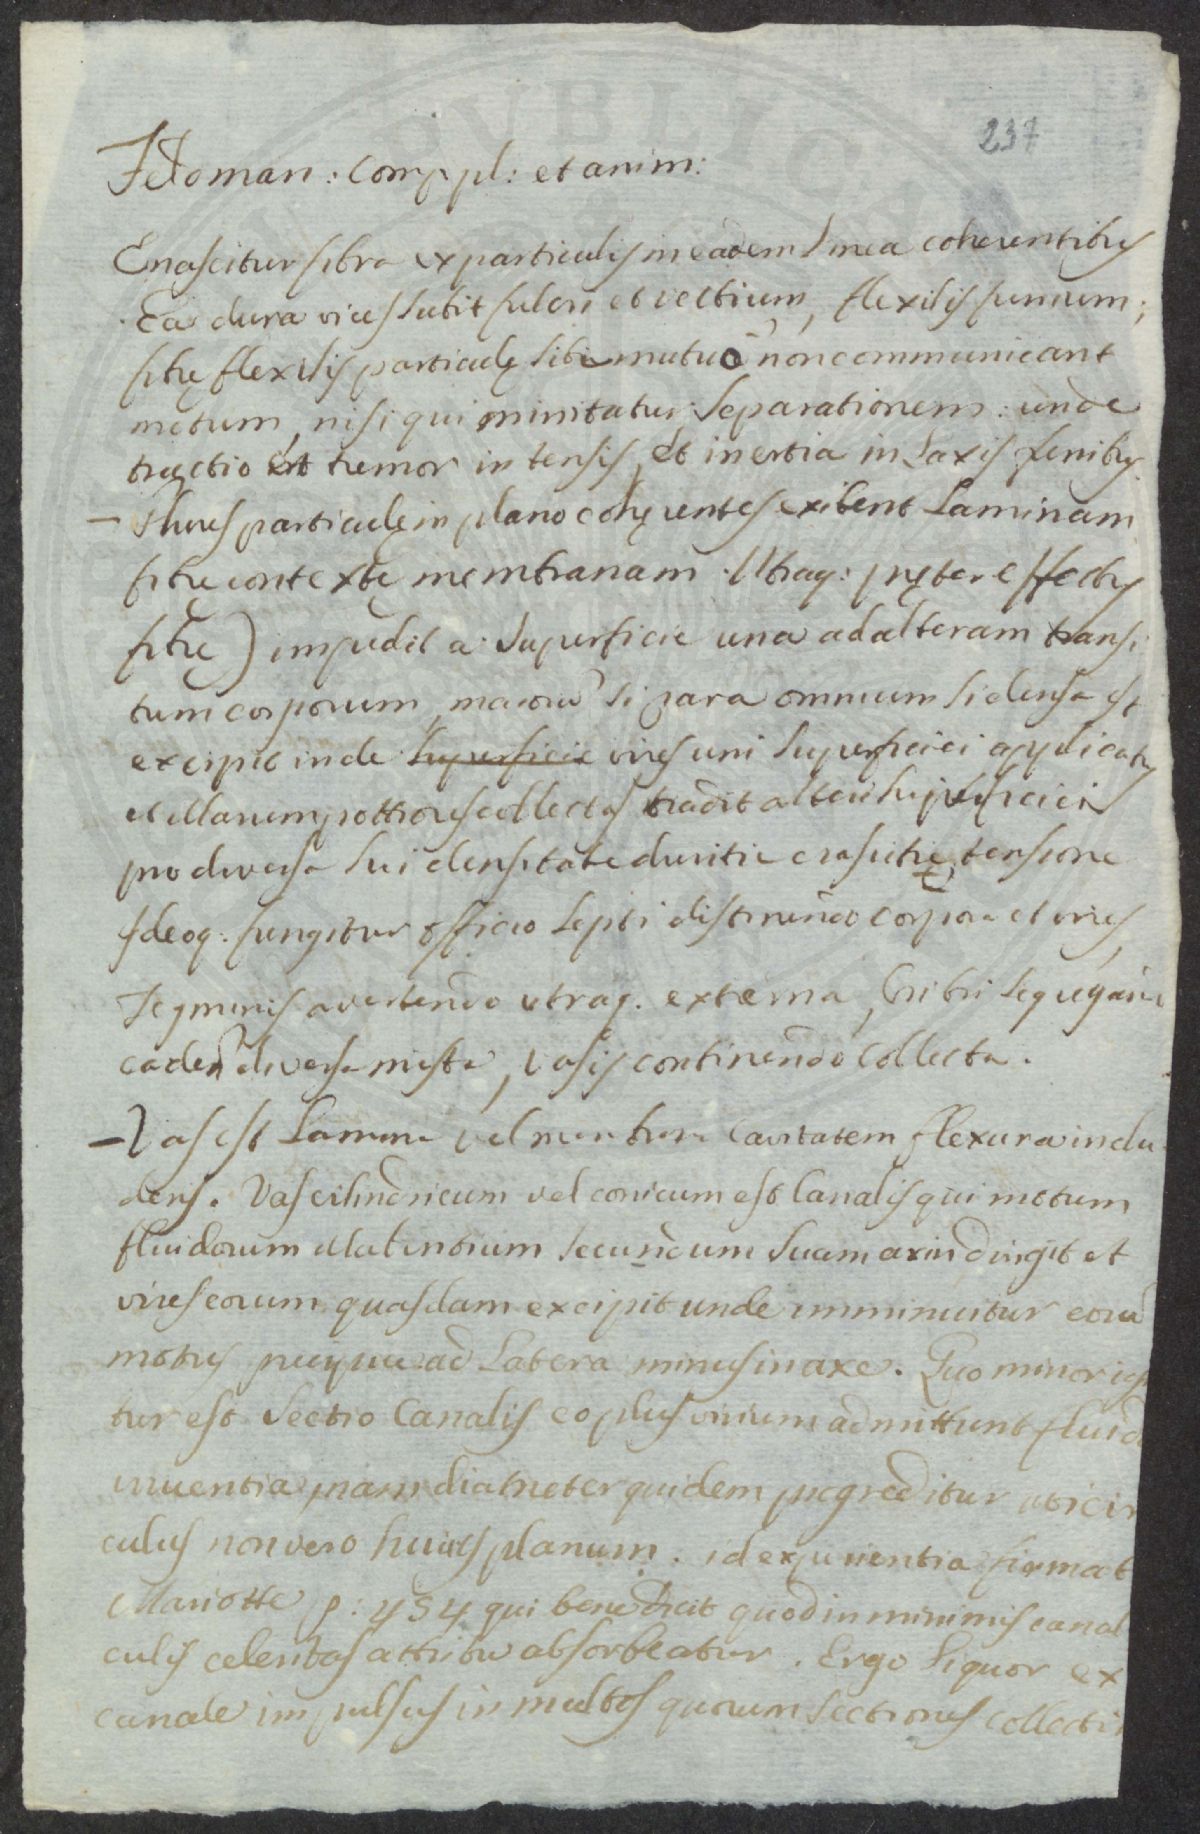 237
Idoman: comp pl: et anim:
Enascitur fibra ex particulis in eadem linea coherentibus
Ea dura vices subit fulcri et vectium, flexilis funium;
fibrę flexilis particulę sibi mutuo non communicant
motum, nisi qui minitatur separationem: unde
tractio et tremor in tensis, et inertia in laxis finibus.
– Plures particulę in plano cohęrentes exibent Laminam
fibrę contextę membranam. Utraq: pręter effectus
fibrę) impedit a superficie una ad alteram transi
tum corporum, maiorū si rara omnium si densa est
excipit inde superficie vires uni superficiei applicatas
et illarum portiones collectas tradit alteri superficiei
pro diversa sui densitate duritie crasitie, tensione
Ideoq: fungitur officio septi distinendo corpora et vires,
Tegminis avertendo utraq. externa, Cribri segregan
eadem diversa mista, vasis continendo collecta.
– Vas est Lamina vel membrana cavitatem flexura inclu
dens. Vas cilindricum vel conicum est Canalis qui motum
fluidorum illabentium secundum suam axin dirigit et
vires eorum quasdam excipit unde imminuitur eorū
motus precipue ad Latera minus in axe. Quo minor igi
tur est sectio Canalis eo plus virium admittunt fluida
nam diameter quidem progreditur uti cir
culus non vero huius planum. id experientia firmat
Mariotte p: 454 qui bene dicit quod in minimis canal
culis celeritas attritu absorbeatur. Ergo liquor ex
canale impulsus in multos quorum sectiones collecti